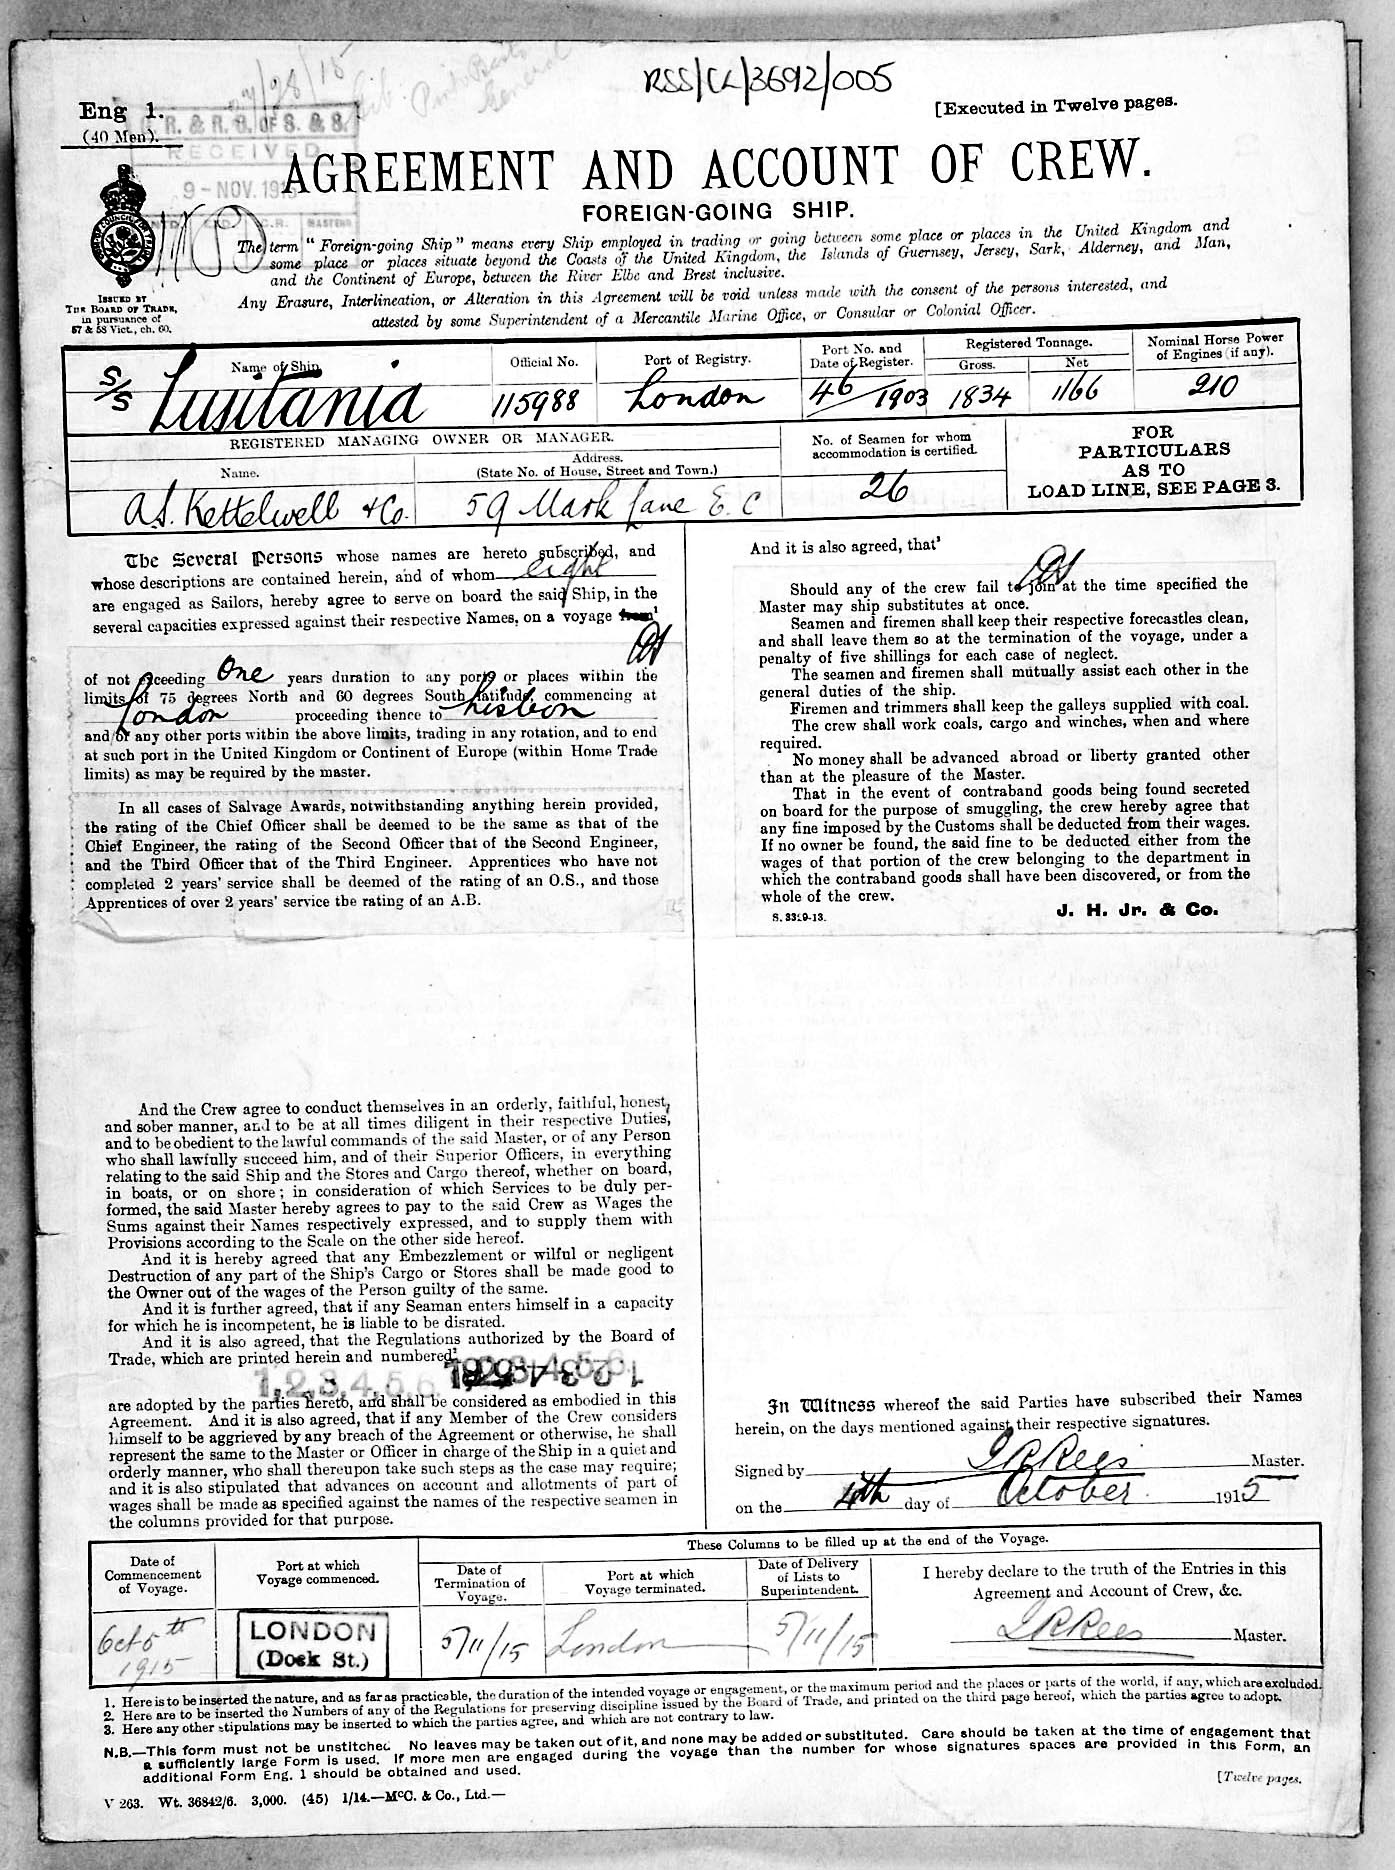 RSS/CL/3692/005
Eng 1.
(40 Men).
[Executed in Twelve pages.
R. & R. G. OF S. & S.
RECEIVED
9 - NOV. 191
C.R.
MASTERS
AGREEMENT AND ACCOUNT OF CREW.
FOREIGN-GOING SHIP.
The term "Foreign-going Ship" means every Ship employed in trading or going between some place or places in the United Kingdom and
some place or places situate beyond the Coasts of the United Kingdom, the Islands of Guernsey, Jersey, Sark, Alderney, and Man,
and the Continent of Europe, between the River Elbe and Brest inclusive.
Any Erasure, Interlineation, or Alteration in this Agreement will be void unless made with the consent of the persons interested, and
attested by some Superintendent of a Mercantile Marine Office, or Consular or Colonial Officer.
ISSUED BY
THE BOARD OF TRADE,
in pursuance of
57 & 58 Vict., ch. 60.
Name of Ship
S/S Lusitania
Official No.
115988
Port of Registry.
London
Port No. and
Date of Register.
46/1903
Registered Tonnage.
Gross.
1834
Net
1166
Nominal Horse Power
of Engines (if any).
210
REGISTERED MANAGING OWNER OR MANAGER.
Name.
A.S. Kettelwell & Co.
Address.
(State No. of House, Street and Town.)
59 Mark Lane E.C
No. of Seamen for whom
accommodation is certified.
26
FOR
PARTICULARS
AS TO
LOAD LINE, SEE PAGE 3.
The Several Persons whose names are hereto subscribed, and
whose descriptions are contained herein, and of whom eight
are engaged as Sailors, hereby agree to serve on board the said Ship, in the
several capacities expressed against their respective Names, on a voyage from¹
of not exceeding One years duration to any ports or places within the
limits of 75 degrees North and 60 degrees South latitude, commencing at
London proceeding thence to Lisbon
and/or any other ports within the above limits, trading in any rotation, and to end
at such port in the United Kingdom or Continent of Europe (within Home Trade
limits) as may be required by the master.
In all cases of Salvage Awards, notwithstanding anything herein provided,
the rating of the Chief Officer shall be deemed to be the same as that of the
Chief Engineer, the rating of the Second Officer that of the Second Engineer,
and the Third Officer that of the Third Engineer. Apprentices who have not
completed 2 years' service shall be deemed of the rating of an O.S., and those
Apprentices of over 2 years' service the rating of an A.B.
And the Crew agree to conduct themselves in an orderly, faithful, honest,
and sober manner, and to be at all times diligent in their respective Duties,
and to be obedient to the lawful commands of the said Master, or of any Person
who shall lawfully succeed him, and of their Superior Officers, in everything
relating to the said Ship and the Stores and Cargo thereof, whether on board,
in boats, or on shore; in consideration of which Services to be duly per-
formed, the said Master hereby agrees to pay to the said Crew as Wages the
Sums against their Names respectively expressed, and to supply them with
Provisions according to the Scale on the other side hereof.
And it is hereby agreed that any Embezzlement or wilful or negligent
Destruction of any part of the Ship's Cargo or Stores shall be made good to
the Owner out of the wages of the Person guilty of the same.
And it is further agreed, that if any Seaman enters himself in a capacity
for which he is incompetent, he is liable to be disrated.
And it is also agreed, that the Regulations authorized by the Board of
Trade, which are printed herein and numbered²
1,2,3,4,5,6
are adopted by the parties hereto, and shall be considered as embodied in this
Agreement. And it is also agreed, that if any Member of the Crew considers
himself to be aggrieved by any breach of the Agreement or otherwise, he shall
represent the same to the Master or Officer in charge of the Ship in a quiet and
orderly manner, who shall thereupon take such steps as the case may require;
and it is also stipulated that advances on account and allotments of part of
wages shall be made as specified against the names of the respective seamen in
the columns provided for that purpose.
And it is also agreed, that³
Should any of the crew fail to join at the time specified the
Master may ship substitutes at once.
Seamen and firemen shall keep their respective forecastles clean,
and shall leave them so at the termination of the voyage, under a
penalty of five shillings for each case of neglect.
The seamen and firemen shall mutually assist each other in the
general duties of the ship.
Firemen and trimmers shall keep the galleys supplied with coal.
The crew shall work coals, cargo and winches, when and where
required.
No money shall be advanced abroad or liberty granted other
than at the pleasure of the Master.
That in the event of contraband goods being found secreted
on board for the purpose of smuggling, the crew hereby agree that
any fine imposed by the Customs shall be deducted from their wages.
If no owner be found, the said fine to be deducted either from the
wages of that portion of the crew belonging to the department in
which the contraband goods shall have been discovered, or from the
whole of the crew.
S. 3319-13.
J. H. Jr. & Co.
In Witness whereof the said Parties have subscribed their Names
herein, on the days mentioned against their respective signatures.
Signed by J R Rees Master.
on the 4th day of October 1915
These Columns to be filled up at the end of the Voyage.
Date of
Commencement
of Voyage.
Oct 5th
1915
Port at which
Voyage commenced.
LONDON
(Dock St.)
Date of
Termination of
Voyage.
5/11/15
Port at which
Voyage terminated.
London
Date of Delivery
of Lists to
Superintendent.
5/11/15
I hereby declare to the truth of the Entries in this
Agreement and Account of Crew, &c.
J R Rees Master.
1. Here is to be inserted the nature, and as far as practicable, the duration of the intended voyage or engagement, or the maximum period and the places or parts of the world, if any, which are excluded.
2. Here are to be inserted the Numbers of any of the Regulations for preserving discipline issued by the Board of Trade, and printed on the third page hereof, which the parties agree to adopt.
3. Here any other stipulations may be inserted to which the parties agree, and which are not contrary to law.
N.B.—This form must not be unstitched. No leaves may be taken out of it, and none may be added or substituted. Care should be taken at the time of engagement that
a sufficiently large Form is used. If more men are engaged during the voyage than the number for whose signatures spaces are provided in this Form, an
additional Form Eng. 1 should be obtained and used.
[Twelve pages.
V 263. Wt. 36842/6. 3,000. (45) 1/14.—McC. & Co., Ltd.—